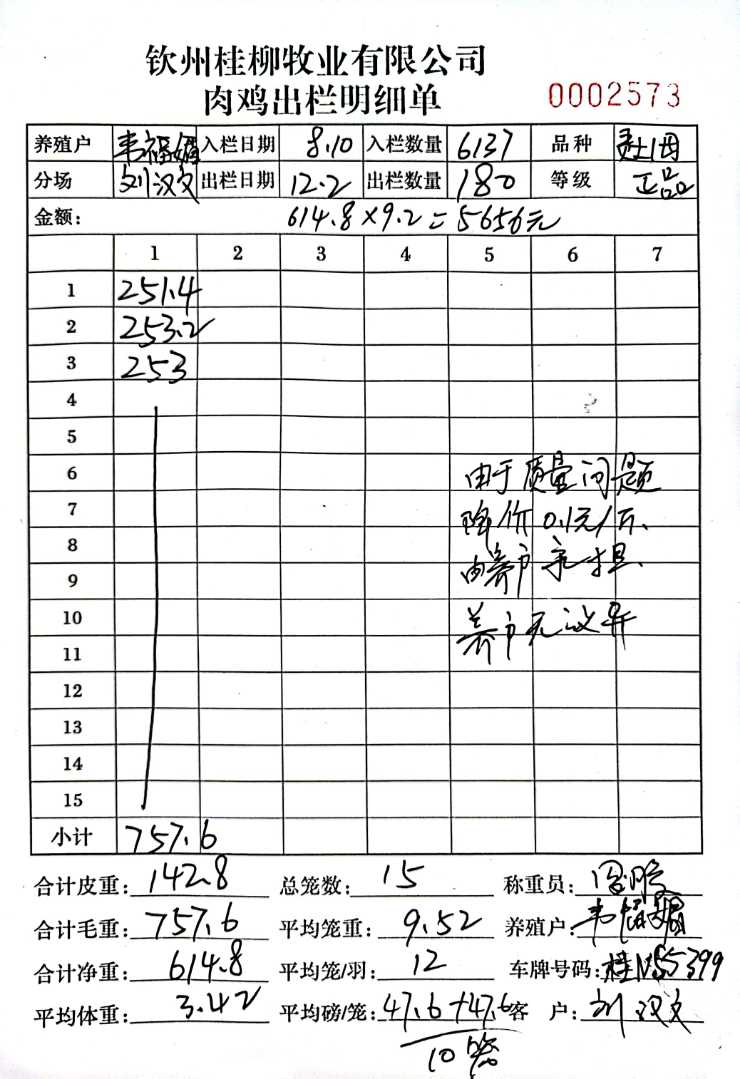 钦州桂柳牧业有限公司
肉鸡出栏明细单 0002573
养殖户 韦福娟 入栏日期 8.10 入栏数量 6137 品种 土1母
分场 刘汉文 出栏日期 12.2 出栏数量 180 等级 正品
金额: 614.8×9.2=5656元
1 2 3 4 5 6 7
1 251.4
2 253.2
3 253
4
5
6 由于质量问题
7 降价0.1元/斤、
8
9 由养户承担、
10 养户无议异
11
12
13
14
15
小计 757.6
合计皮重: 142.8 总笼数: 15 称重员:
合计毛重: 757.6 平均笼重: 9.52 养殖户: 韦福娟
合计净重: 614.8 平均笼/羽: 12 车牌号码: 桂N55399
平均体重: 3.42 平均磅/笼: 47.6+47.6 客 户: 刘汉文
10笼